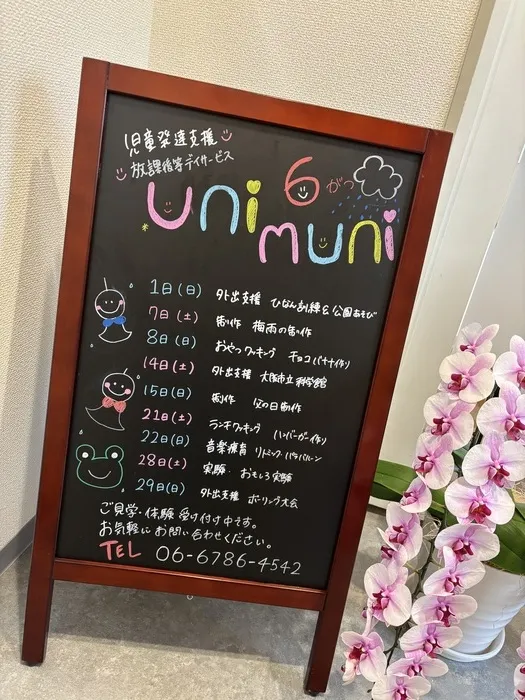 児童発達支援
放課後等デイサービス
uni 6がつ
muni
1日(日) 外出支援 ひなん訓練&公園あそび
7日(土) 制作 梅雨の制作
8日(日) おやつクッキング チョコバナナ作り
14日(土) 外出支援 大阪市立科学館
15日(日) 制作 父の日制作
21日(土) ランチクッキング ハンバーガー作り
22日(日) 音楽療育 リトミック・パラバルーン
28日(土) 実験・おもしろ実験
29日(日) 外出支援 ボーリング大会
ご見学・体験受け付け中です。
お気軽にお問い合わせください。
TEL 06-6786-4542